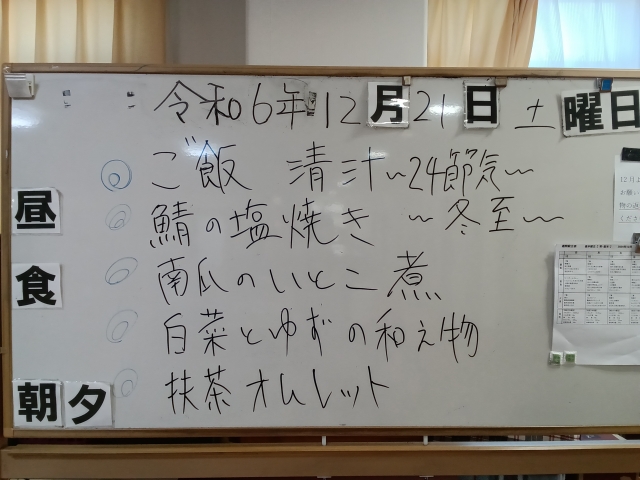 令和6年12月21日 土曜日
ご飯 清汁~24節気~
鯖の塩焼き ~冬至~
南瓜のいとこ煮
白菜とゆずの和え物
抹茶オムレット
昼食
朝夕
12月よ
お願い
物の返
くださ